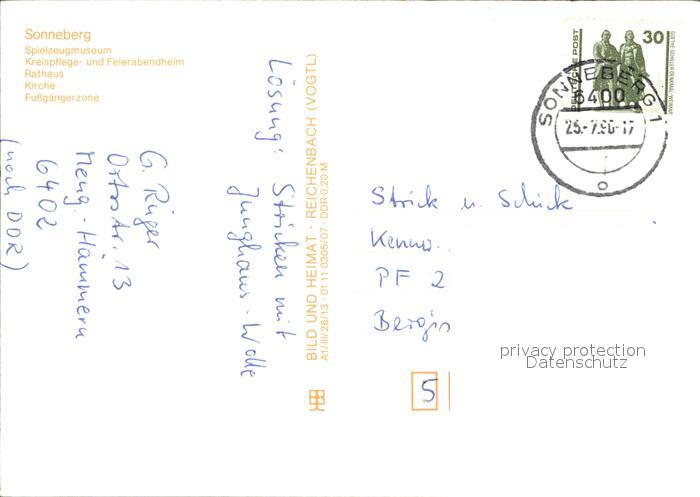 Sonneberg
Spielzeugmuseum
Kreispflege- und Feierabendheim
Rathaus
Kirche
Fußgängerzone
Lösung: Stricken mit
Junghans-Wolle
G. Rüger
Ortsstr. 13
Meng.-Hämmern
6402
(noch DDR)
BILD UND HEIMAT · REICHENBACH (VOGTL)
A1/III/26/13 · 01 11 0305/07 · DDR 0,20 M
DEUTSCHE POST
30
GOETHE-SCHILLER-DENKMAL WEIMAR
SONNEBERG 1
6400
25.-7.90-17
Strick u. Schick
Kennw.
PF 2
5
privacy protection
Datenschutz